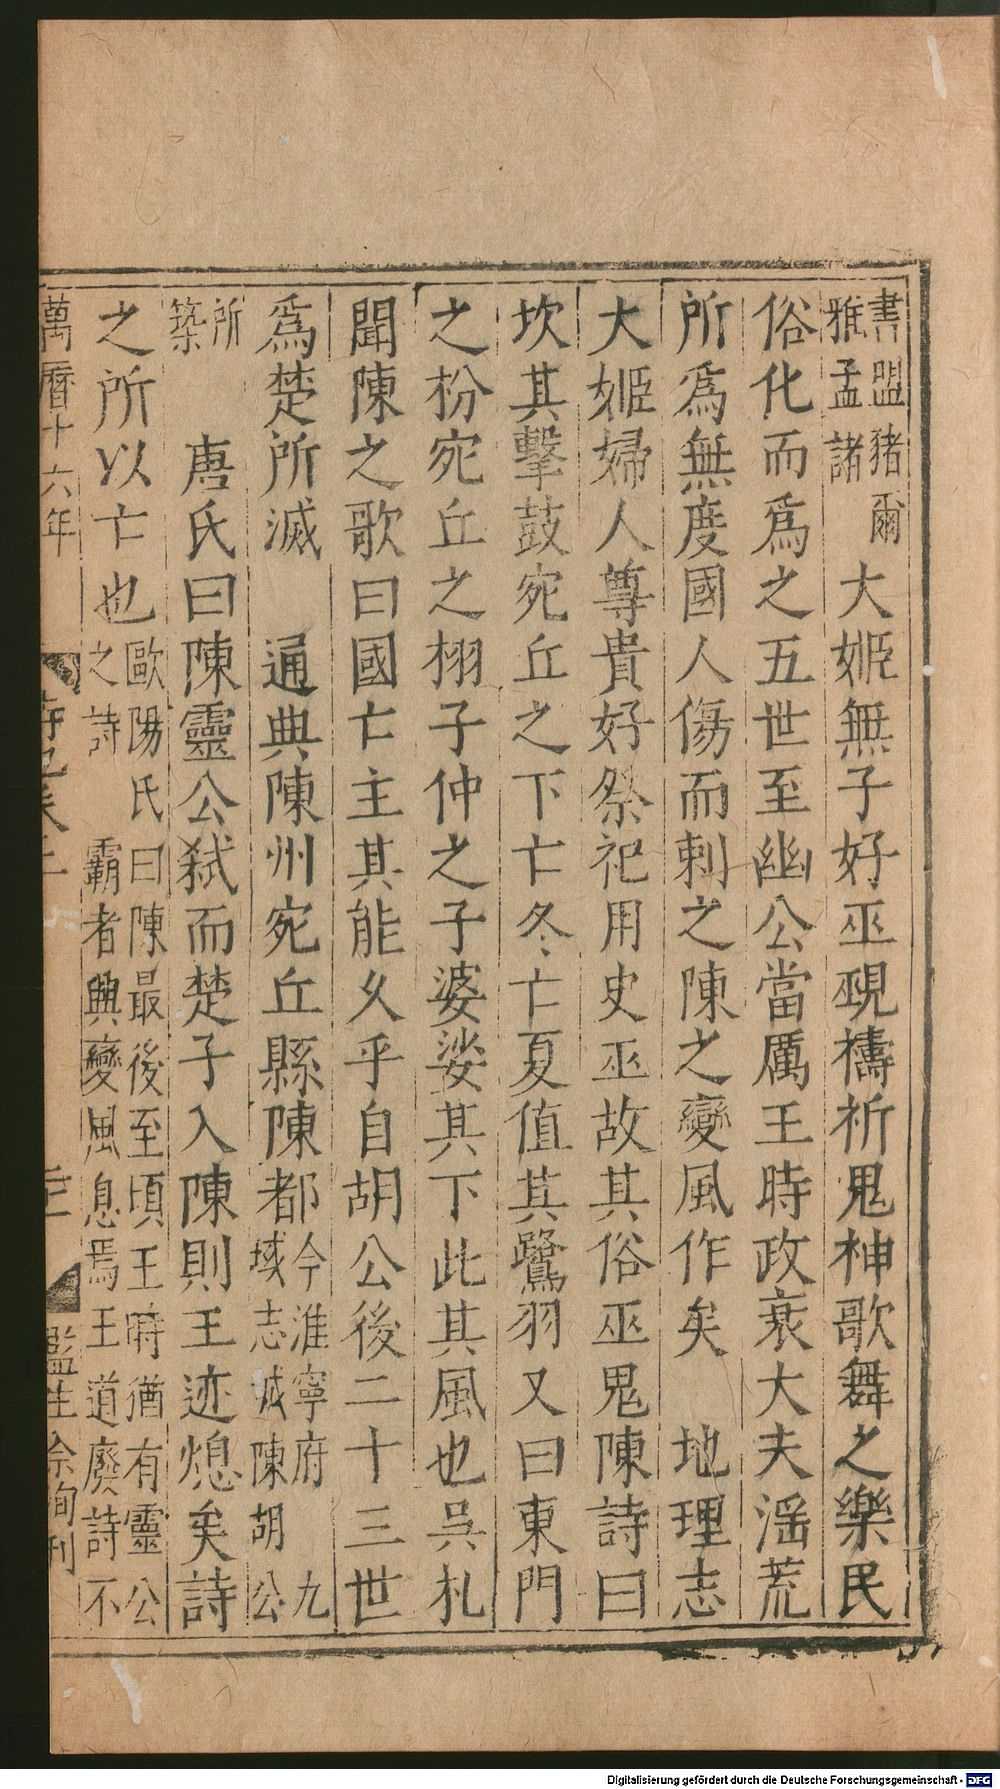 書盟豬爾
雅孟諸
大姬無子好巫覡禱祈鬼神歌舞之樂民
俗化而爲之五世至幽公當厲王時政衰大夫滛荒
所爲無度國人傷而刺之陳之變風作矣　地理志
大姬婦人尊貴好祭祀用史巫故其俗巫鬼陳詩曰
坎其擊鼓宛丘之下亡冬亡夏值其鷺羽又曰東門
之枌宛丘之栩子仲之子婆娑其下此其風也吳札
聞陳之歌曰國亡主其能久乎自胡公後二十三世
爲楚所滅　通典陳州宛丘縣陳都
今淮寧府　九
域志城陳胡公
所
築
唐氏曰陳靈公弑而楚子入陳則王迹熄矣詩
之所以亡也
歐陽氏曰陳最後至頃王時猶有靈公
之詩　霸者興變風息焉王道廢詩不
萬曆十六年
監生余
刊
Digitalisierung gefördert durch die Deutsche Forschungsgemeinschaft - DFG